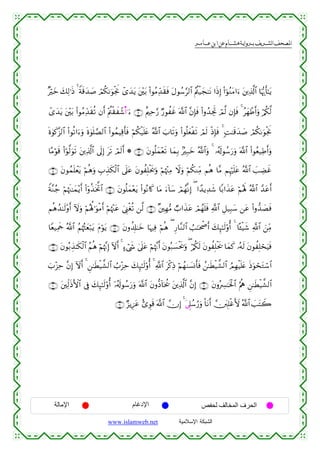 المصحف الشريف برواية هشام عن ابن عامر
يَٰٓأَيُّهَا ٱلَّذِينَ ءَامَنُوٓا۟ إِذَا نَٰجَيْتُمُ ٱلرَّسُولَ فَقَدِّمُوا۟ بَيْنَ يَدَىْ نَجْوَىٰكُمْ صَدَقَةً ۚ ذَٰلِكَ خَيْرٌ
لَّكُمْ وَأَطْهَرُ ۚ فَإِن لَّمْ تَجِدُوا۟ فَإِنَّ ٱللَّهَ غَفُورٌ رَّحِيمٌ ۝ ءَا۬شْفَقْتُمُۥٓ أَن تُقَدِّمُوا۟ بَيْنَ يَدَىْ
نَجْوَىٰكُمْ صَدَقَٰتٍ ۚ فَإِذْ لَمْ تَفْعَلُوا۟ وَتَابَ ٱللَّهُ عَلَيْكُمْ فَأَقِيمُوا۟ ٱلصَّلَوٰةَ وَءَاتُوا۟ ٱلزَّكَوٰةَ
وَأَطِيعُوا۟ ٱللَّهَ وَرَسُولَهُۥ ۚ وَٱللَّهُ خَبِيرٌۢ بِمَا تَعْمَلُونَ ۝ ۞ أَلَمْ تَرَ إِلَى ٱلَّذِينَ تَوَلَّوْا۟ قَوْمًا
غَضِبَ ٱللَّهُ عَلَيْهِم مَّا هُم مِّنكُمْ وَلَا مِنْهُمْ وَيَحْلِفُونَ عَلَى ٱلْكَذِبِ وَهُمْ يَعْلَمُونَ ۝
أَعَدَّ ٱللَّهُ لَهُمْ عَذَابًا شَدِيدًا ۖ إِنَّهُمْ سَآءَ مَا كَانُوا۟ يَعْمَلُونَ ۝ ٱتَّخَذُوٓا۟ أَيْمَٰنَهُمْ جُنَّةً
فَصَدُّوا۟ عَن سَبِيلِ ٱللَّهِ فَلَهُمْ عَذَابٌ مُّهِينٌ ۝ لَّن تُغْنِىَ عَنْهُمْ أَمْوَٰلُهُمْ وَلَآ أَوْلَٰدُهُم
مِّنَ ٱللَّهِ شَيْـًٔا ۚ أُو۟لَٰٓئِكَ أَصْحَٰبُ ٱلنَّارِ ۖ هُمْ فِيهَا خَٰلِدُونَ ۝ يَوْمَ يَبْعَثُهُمُ ٱللَّهُ جَمِيعًا
فَيَحْلِفُونَ لَهُۥ كَمَا يَحْلِفُونَ لَكُمْ ۖ وَيَحْسَبُونَ أَنَّهُمْ عَلَىٰ شَىْءٍ ۚ أَلَآ إِنَّهُمْ هُمُ ٱلْكَٰذِبُونَ ۝
ٱسْتَحْوَذَ عَلَيْهِمُ ٱلشَّيْطَٰنُ فَأَنسَىٰهُمْ ذِكْرَ ٱللَّهِ ۚ أُو۟لَٰٓئِكَ حِزْبُ ٱلشَّيْطَٰنِ ۚ أَلَآ إِنَّ حِزْبَ
ٱلشَّيْطَٰنِ هُمُ ٱلْخَٰسِرُونَ ۝ إِنَّ ٱلَّذِينَ يُحَآدُّونَ ٱللَّهَ وَرَسُولَهُۥٓ أُو۟لَٰٓئِكَ فِى ٱلْأَذَلِّينَ ۝
كَتَبَ ٱللَّهُ لَأَغْلِبَنَّ أَنَا۠ وَرُسُلِىَ ۚ إِنَّ ٱللَّهَ قَوِىٌّ عَزِيزٌ ۝
الحرف المخالف لحفص الإدغام الإمالة
www.islamweb.net الشبكة الإسلامية